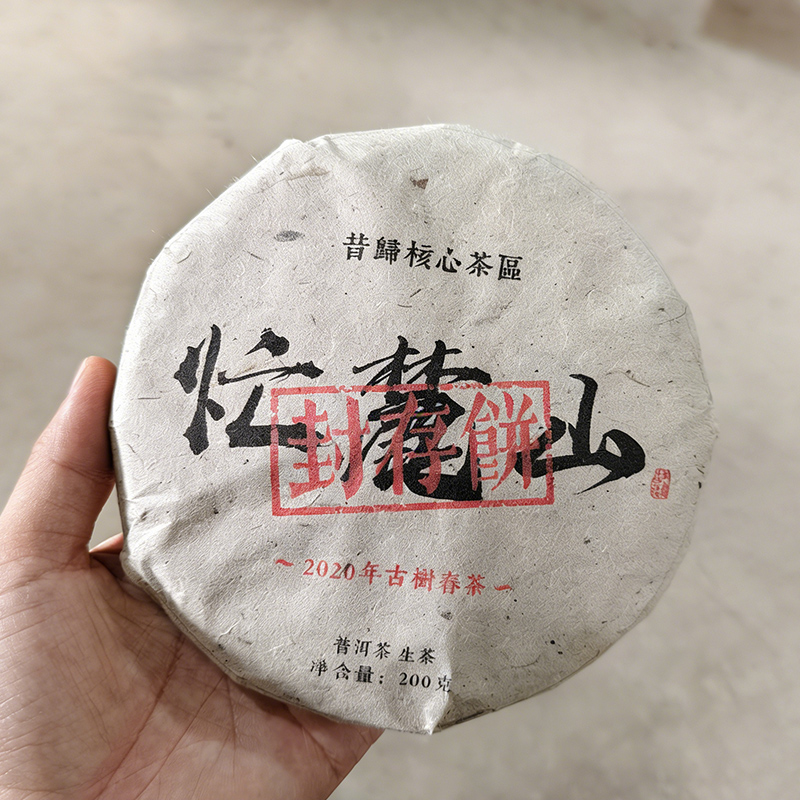 昔歸核心茶區
忙麓山
封存餅
~ 2020年古樹春茶 ~
普洱茶 生茶
净含量：200克